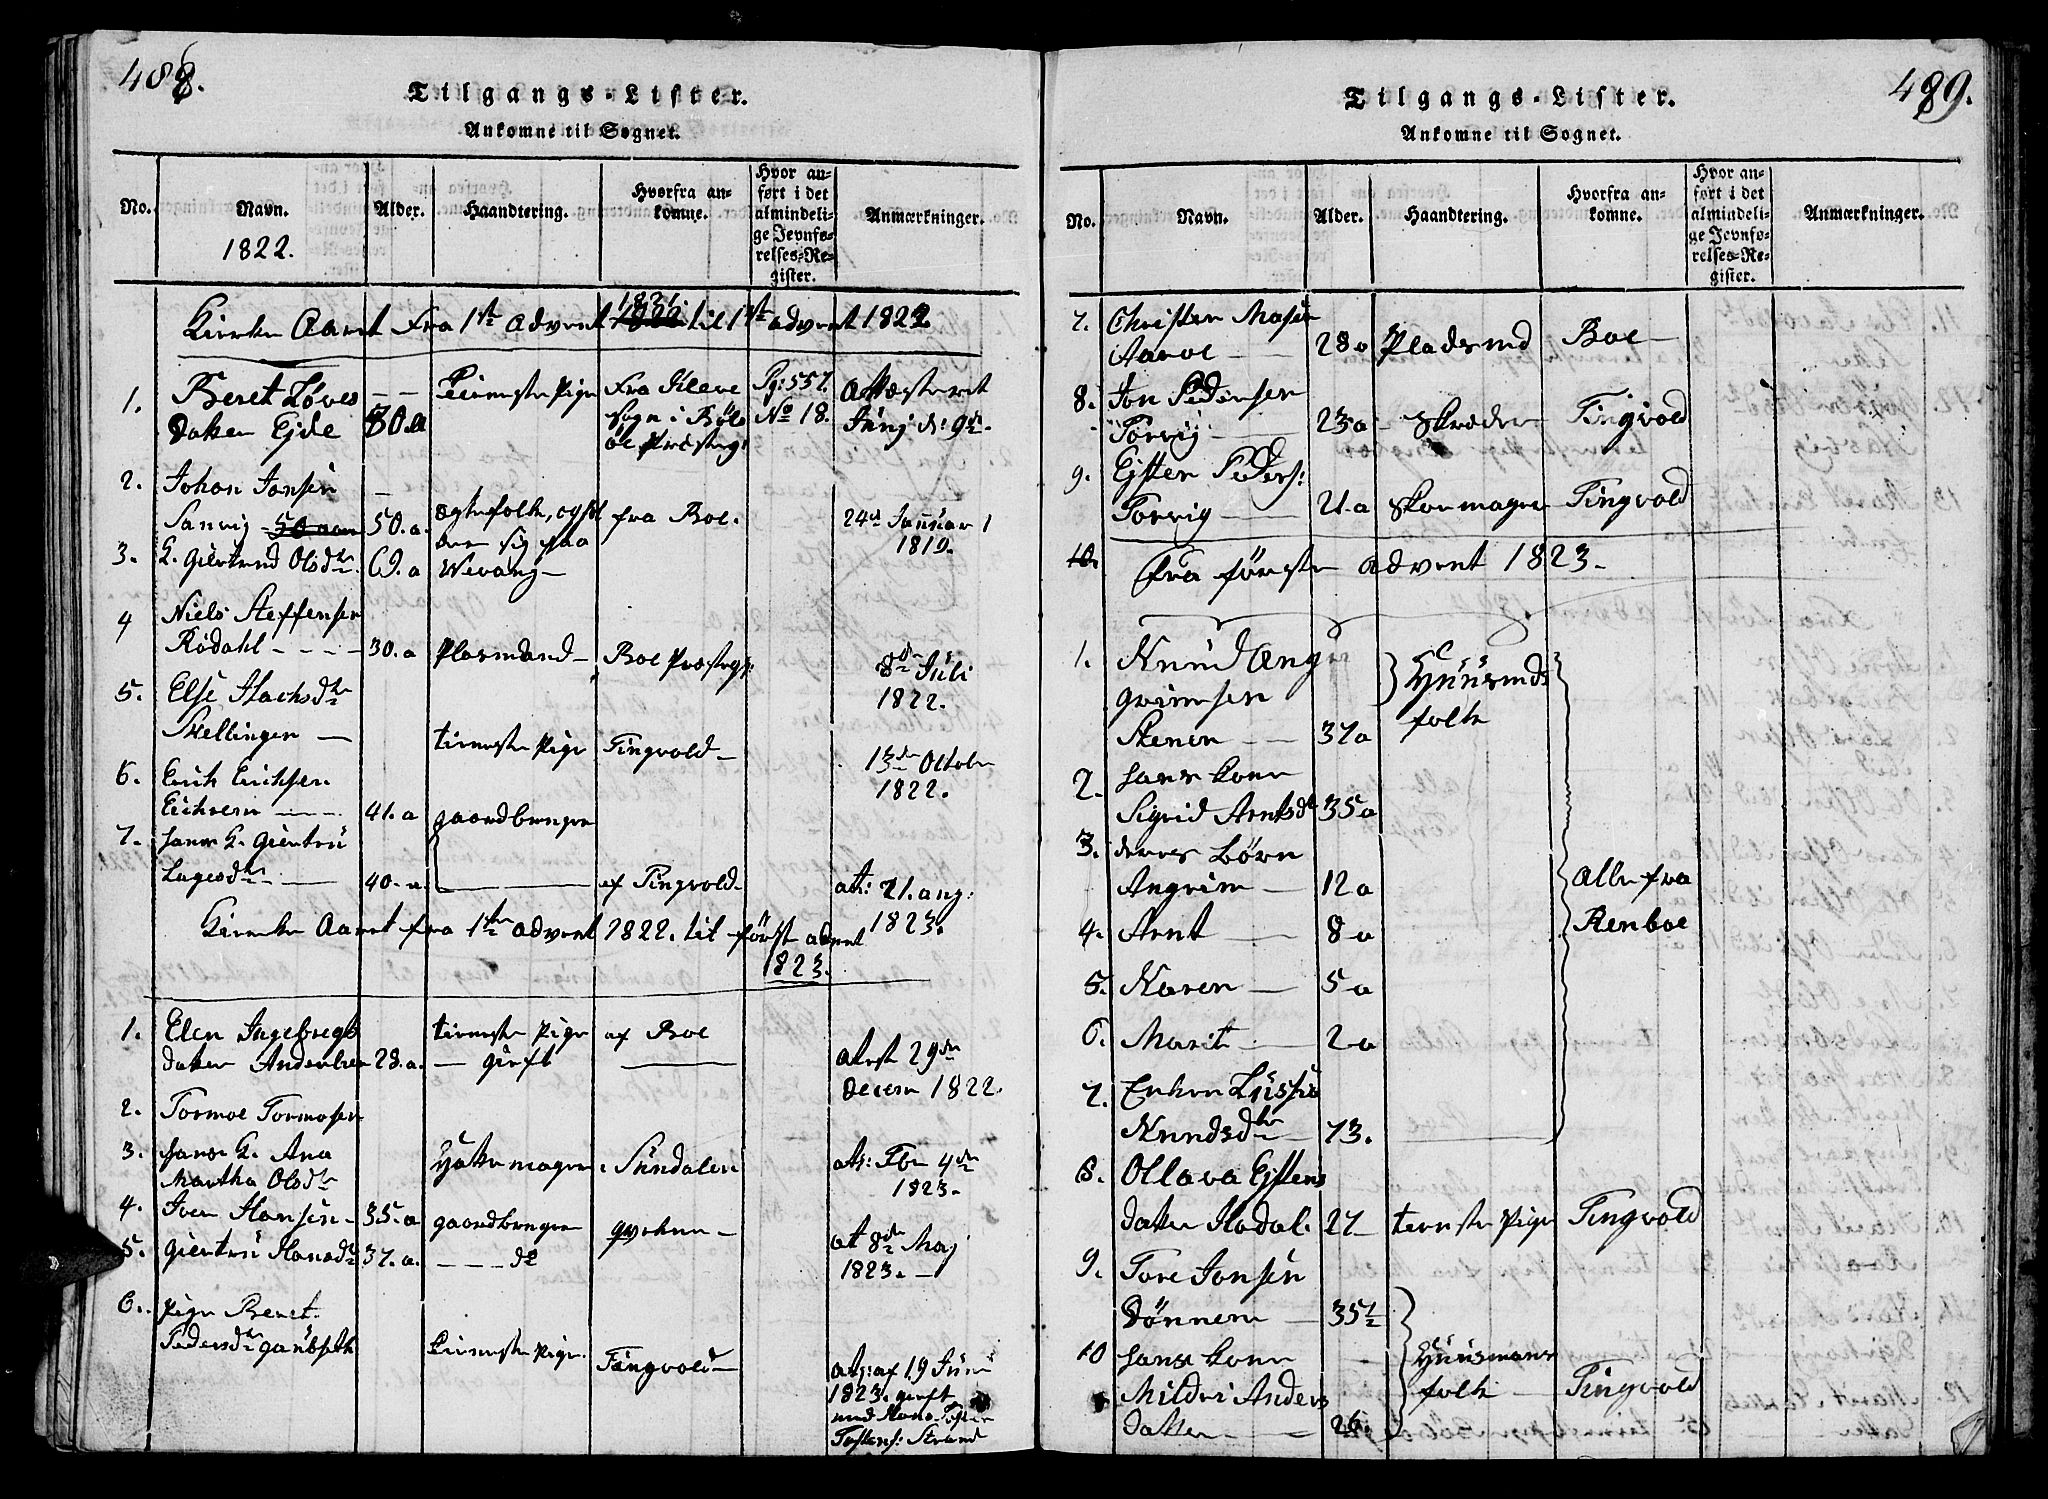 488.
Tilgangs-Lister.
Ankomne til Sognet.
No.
Navn.
1822.
Alder.
Haandtering.
Hvorfra an-
komne.
Hvor an-
ført i det
almindeli-
ge Jevnfø-
relses-Re-
gister.
Anmærkninger.
Kirke Aaret fra 1ste Advent 1821 til 1ste advent 1822.
1. Beret Løves
Datter Ejde 30.a
tienneste Pige
fra Kleve
Sogn i Böls
öe Præsteg:
Pg: 557.
No 18.
Attesteret
Junj d: 9de.
2. Johan Jonsen
Sanvig 50 aar 50.a.
ægtefolk,
der sig paa
fra Boe.
24de Januar
1819.
3. K. Giertrud Olsdtr. 69.a
Wevang
4 Niels Steffensen
Rödahl 30.a
Plasmand
Boe Præsteg:
8de Juli
1822.
5. Else
Skellingen
tieneste Pige
Tingvold
13de Octobr
1822.
6. Erich Erichsen
41.a
gaardbruger
7. hans K. Giertru
Lagesdtr. 40.a.
af Tingvold
att: 21. aug:
1823.
Kirke Aaret fra 1ste advent 1822. til först advent
1823.
1. Elen Ingebregts
datter 28.a.
tieneste Pige
gift
af Boe
attest 29de
Decem 1822.
2. Tormoe Tormosen
3. hans K. Ana
Martha Olsdtr
Hattemager
Sundalen
att: Fbr 4de
1823.
4. Iver Hansen 35.a
gaardbruger
qvehne
at 8de Maj
1823.
5. Giertru Hansdtr 37.a.
do
6. Pige Beret
Pedersdtr
tieneste Pige
Tingvold
att: af 19 Juni
1823. gift
med Hans
Tostens: Strand
489.
Tilgangs-Lister.
Ankomne til Sognet.
No.
Navn.
Alder.
Haandtering.
Hvorfra an-
komne.
Hvor an-
ført i det
almindeli-
ge Jevnfø-
relses-Re-
gister.
Anmærkninger.
7. Christen
Aaroe 28a Pladsmd Boe
8. Jon Pedersen
Torvig 23a Skræder Tingvold
9. Ejsten Peders:
Torvig 21.a Skoemager Tingvold
10. fra förste advent 1823.
1. Knud Ang
grimsen
Stenen 37a
Huusmds
folk
2. hans kone
Sigrid Arntsdtr 35a
3. deres börn
Angrim 12a
Alle fra
Renboe
4. Arnt 8a
5. Karen 5a
6. Marit 2a
7. Enken
Knudsdtr 73.
8. Ollava Ejstens
datter Hodal. 27 tieneste Pige Tingvold
9. Tore Jonsen
Dönnem 35½
10 hans kone
Mildri Anders
datter 26.
Huusmans
folk
Tingvold